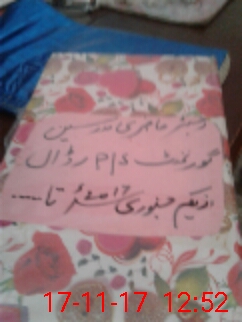 رجسٹر حاضری مدرسین
گورنمنٹ P/S رڈال
از یکم جنوری 2017ء تا ----
17-11-17 12:52